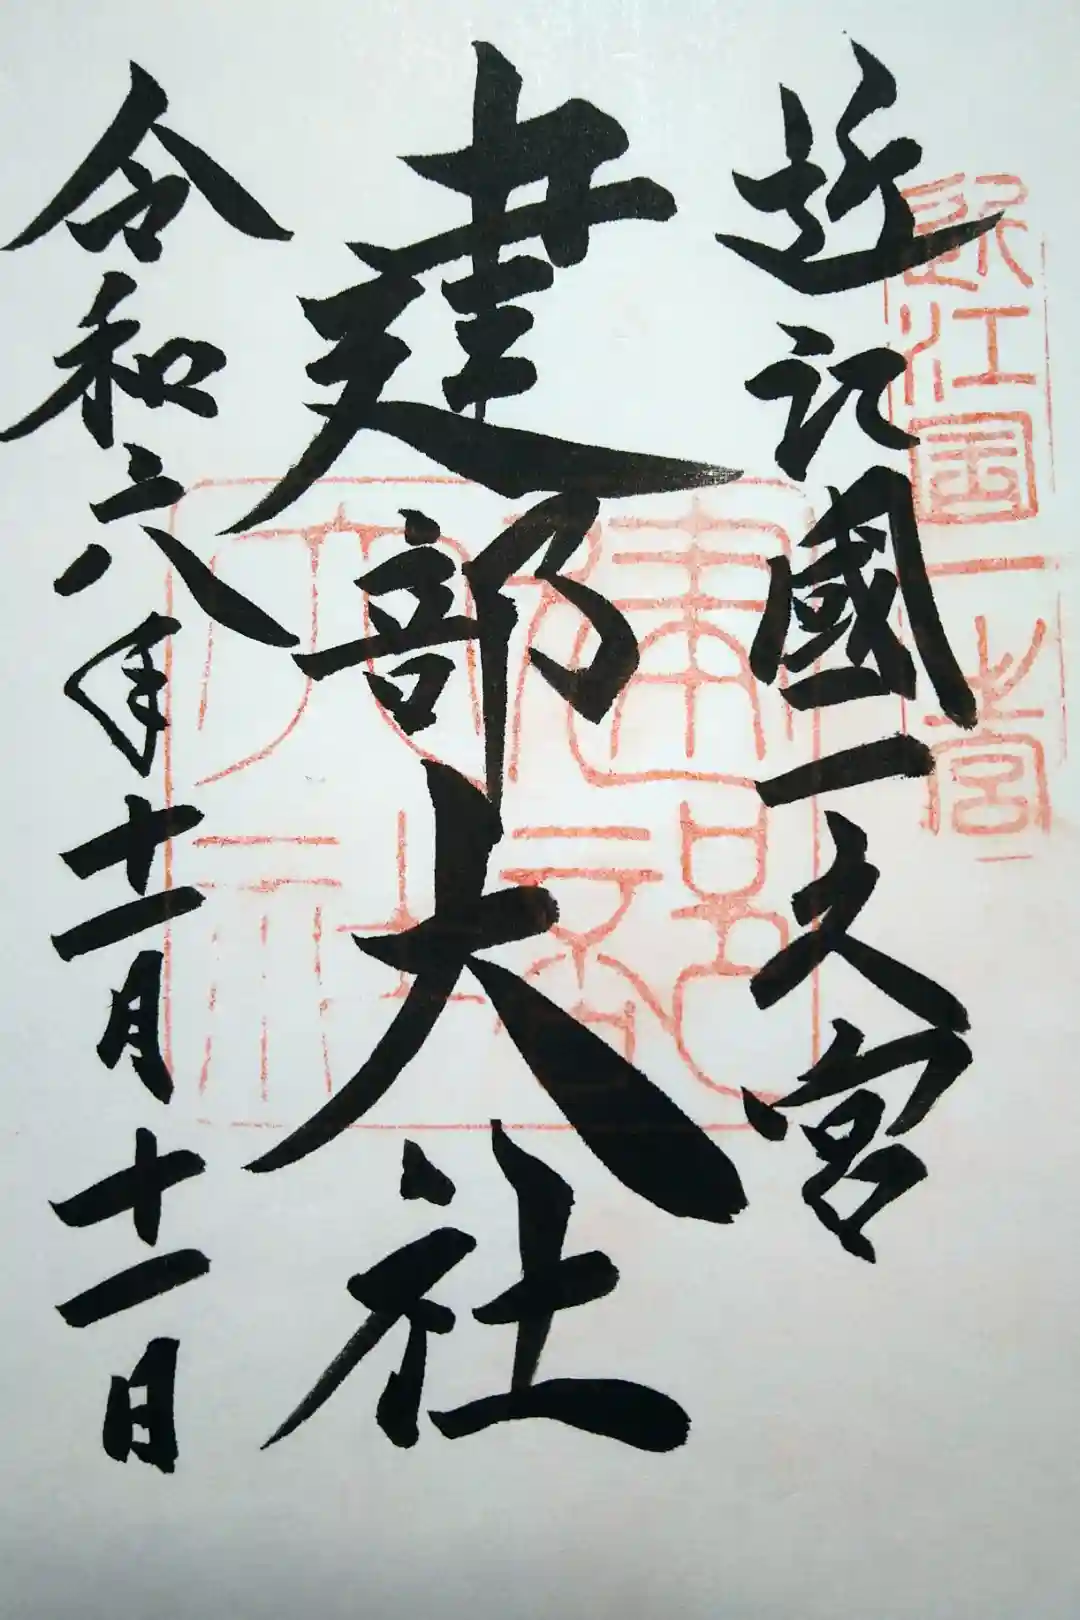 近江国一之宮
近江國一之宮
建部大社
建部大社
令和六年十一月十一日